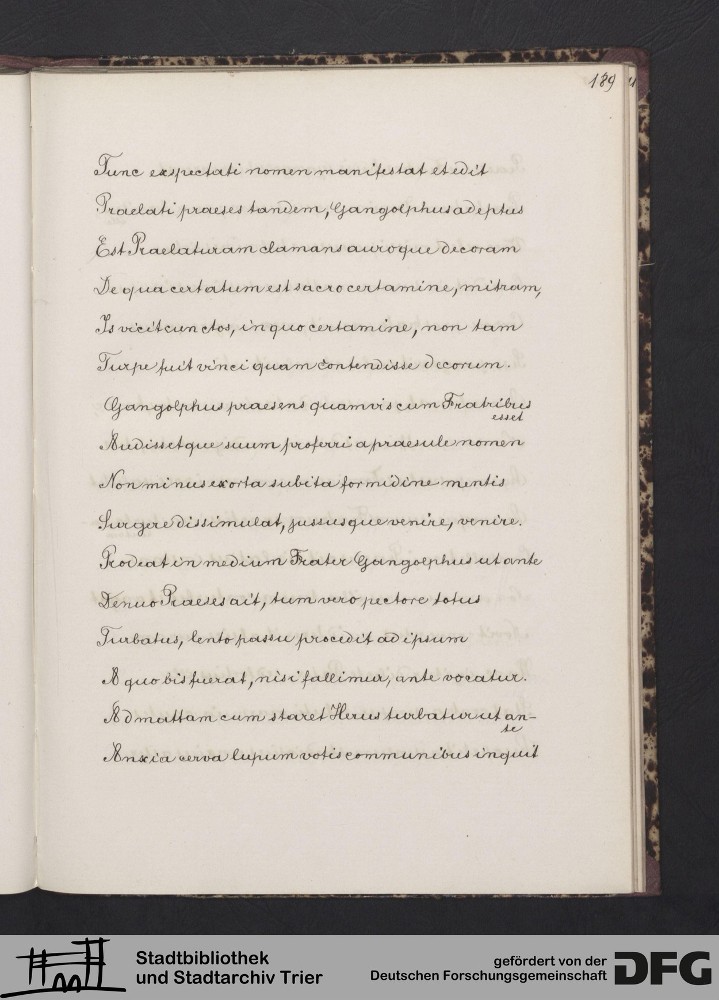 189
Tunc expectati nomen manifestat et edit
Praelati praeses tandem, Gangolphus adeptus
Est Praelaturam clamans auroque decoram
De qua certatum est sacro certamine, mitram,
Is vicit cunctos, in quo certamine, non tam
Turpe fuit vinci quam contendisse decorum.
Gangolphus praesens quamvis cum Fratribus
esset
Audissetque suum proferri a praesule nomen
Non minus exorta subita formidine mentis
Surgere dissimulat, jussusque venire, venire.
Prodeat in medium Frater Gangolphus ut ante
Denuo Praeses ait, tum vero pectore totus
Turbatus, lento passu procedit ad ipsum
A quo bis fuerat, nisi fallimur, ante vocatur.
Ad mattam cum staret Herus turbatur ut an-
te
Anxia cerva lupum votis communibus inquit
Stadtbibliothek
und Stadtarchiv Trier
gefördert von der
Deutschen Forschungsgemeinschaft
DFG